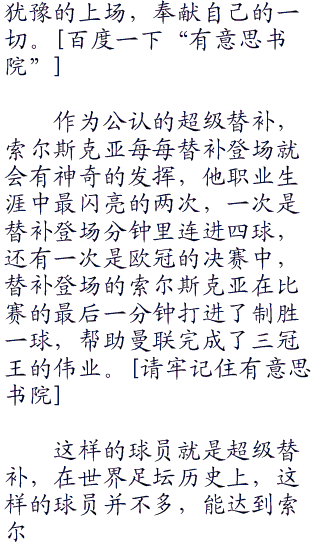 犹豫的上场，奉献自己的一
切。[百度一下“有意思书
院”]
作为公认的超级替补，
索尔斯克亚每每替补登场就
会有神奇的发挥，他职业生
涯中最闪亮的两次，一次是
替补登场分钟里连进四球，
还有一次是欧冠的决赛中，
替补登场的索尔斯克亚在比
赛的最后一分钟打进了制胜
一球，帮助曼联完成了三冠
王的伟业。[请牢记住有意思
书院]
这样的球员就是超级替
补，在世界足坛历史上，这
样的球员并不多，能达到索
尔